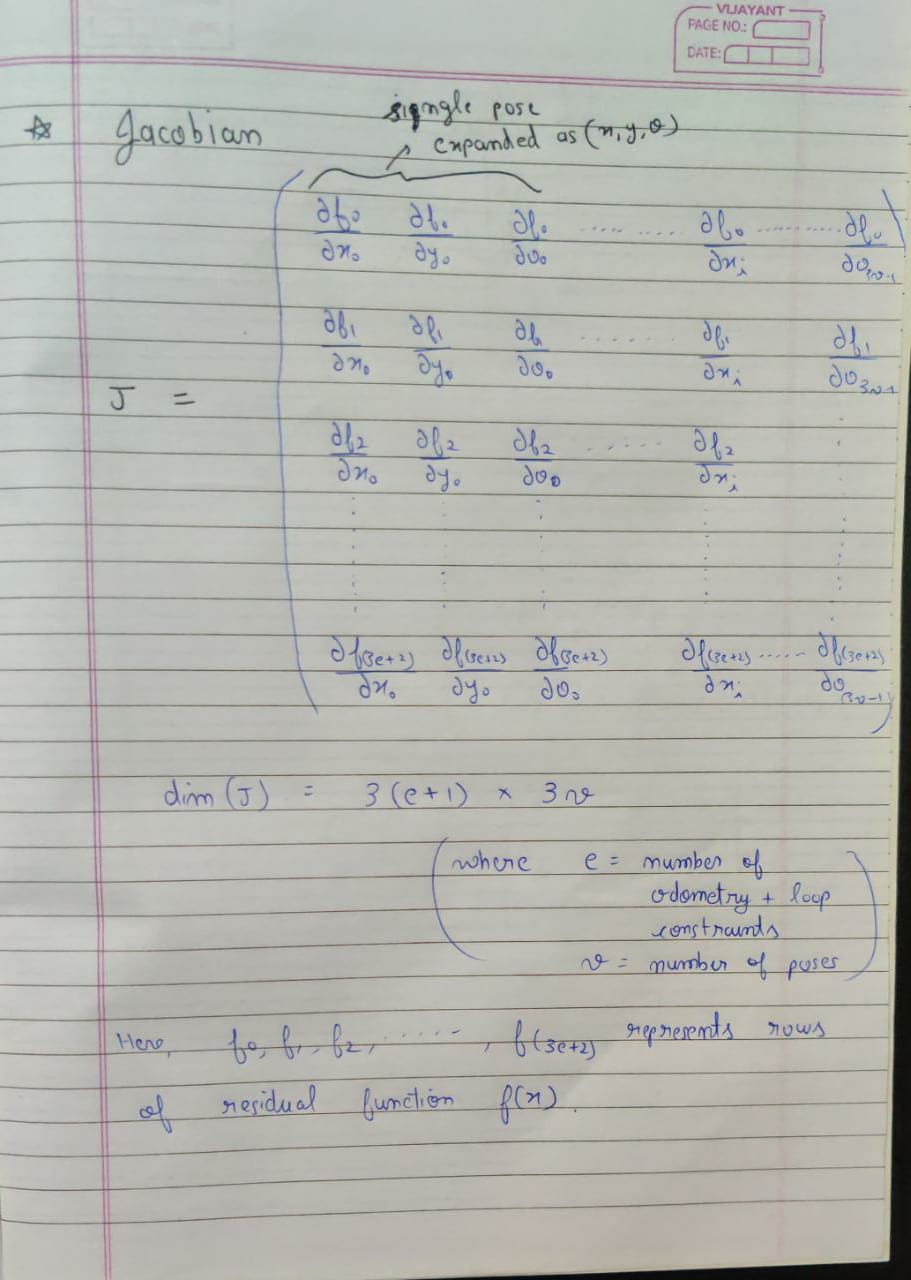 VIJAYANT
PAGE NO.:
DATE:
single pose
☆ Jacobian expanded as (x, y, θ)
∂f₀/∂x₀ ∂f₀/∂y₀ ∂f₀/∂θ₀ ........... ∂f₀/∂xᵢ ........... ∂f₀/∂θ₃ᵥ₋₁
∂f₁/∂x₀ ∂f₁/∂y₀ ∂f₁/∂θ₀ ........... ∂f₁/∂xᵢ ∂f₁/∂θ₃ᵥ₋₁
J =
∂f₂/∂x₀ ∂f₂/∂y₀ ∂f₂/∂θ₀ ........... ∂f₂/∂xᵢ
∂f₍₃ₑ₊₂₎/∂x₀ ∂f₍₃ₑ₊₂₎/∂y₀ ∂f₍₃ₑ₊₂₎/∂θ₀ ∂f₍₃ₑ₊₂₎/∂xᵢ ...... ∂f₍₃ₑ₊₂₎/∂θ₍₃ᵥ₋₁₎
dim (J) = 3 (e+1) × 3v
(where e = number of
odometry + loop
constraints
v = number of poses)
Here, f₀, f₁, f₂, ......, f₍₃ₑ₊₂₎ represents rows
of residual function f(x).